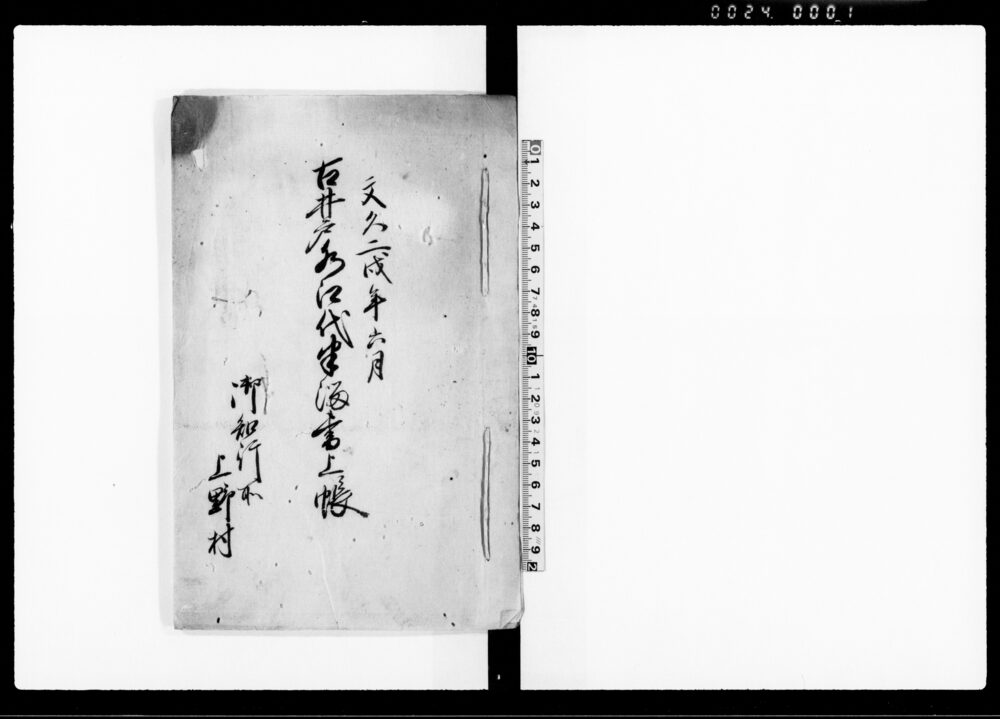 文久二戌年六月
古井戸水口代米深書上帳
御知行所
上野村
0024 0001
0 1 2 3 4 5 6 7 8 9 10 1 2 3 4 5 6 7 8 9 2